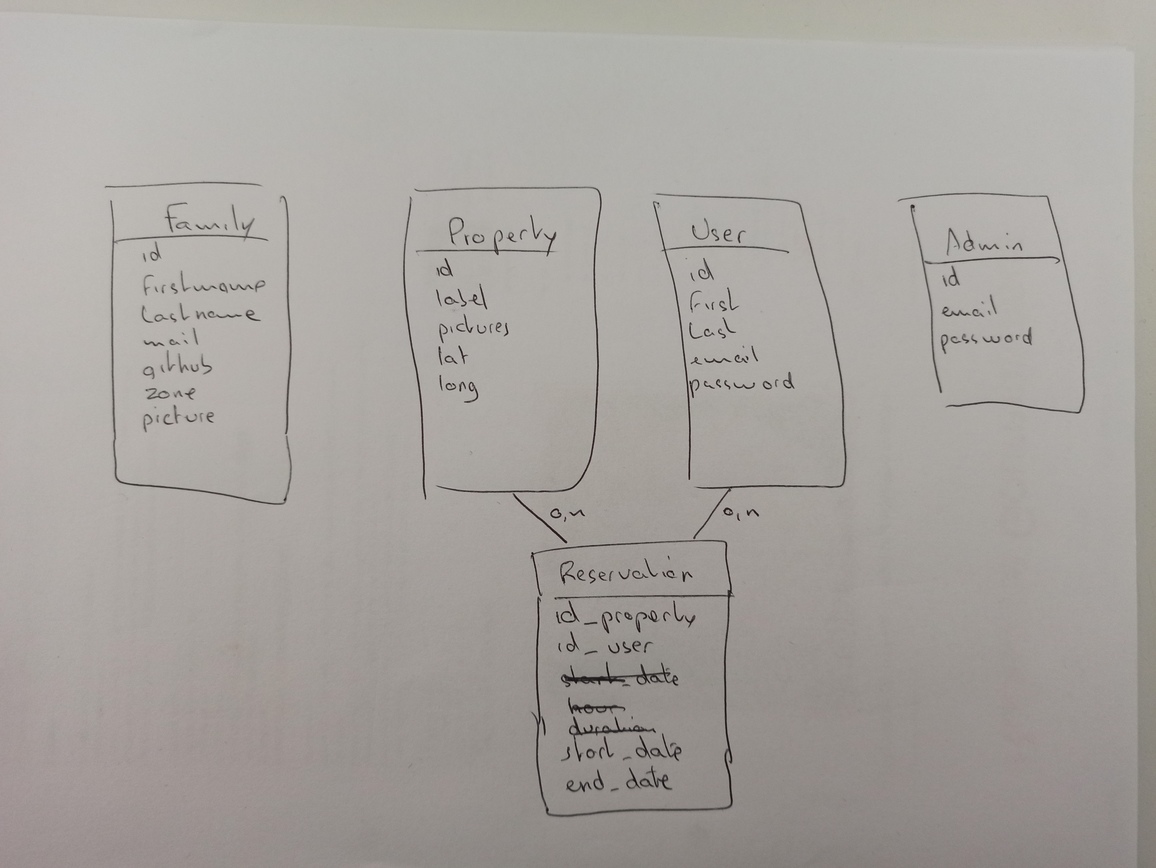 Family
id
firstname
Lastname
mail
github
zone
picture
Property
id
label
pictures
lat
long
User
id
First
Last
email
password
Admin
id
email
password
0,n
0,n
Reservation
id_property
id_user
start_date
hour
duration
start_date
end_date